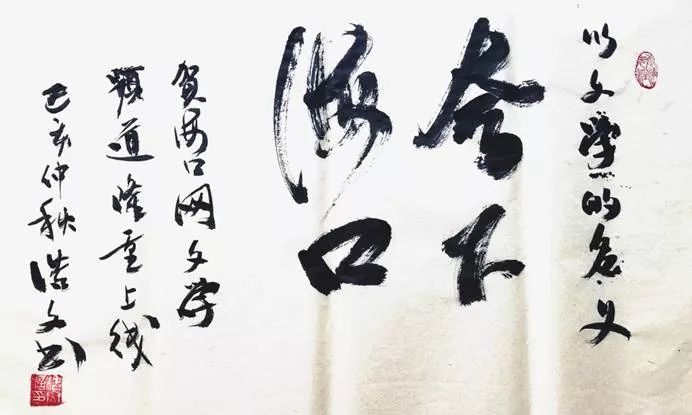 以文學的名义
拿下
海口
賀海口网文学
频道隆重上线
己亥仲秋浩文书